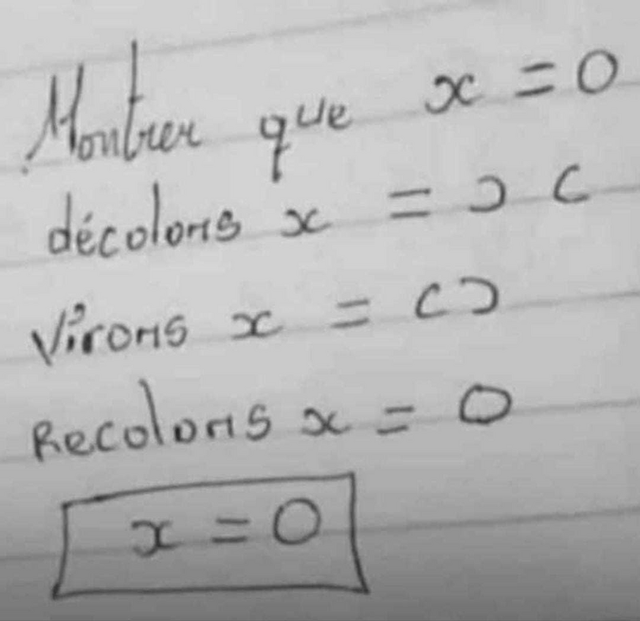 Montrer que x = 0
décolons x = ɔ c
Virons x = c ɔ
Recolons x = 0
x = 0